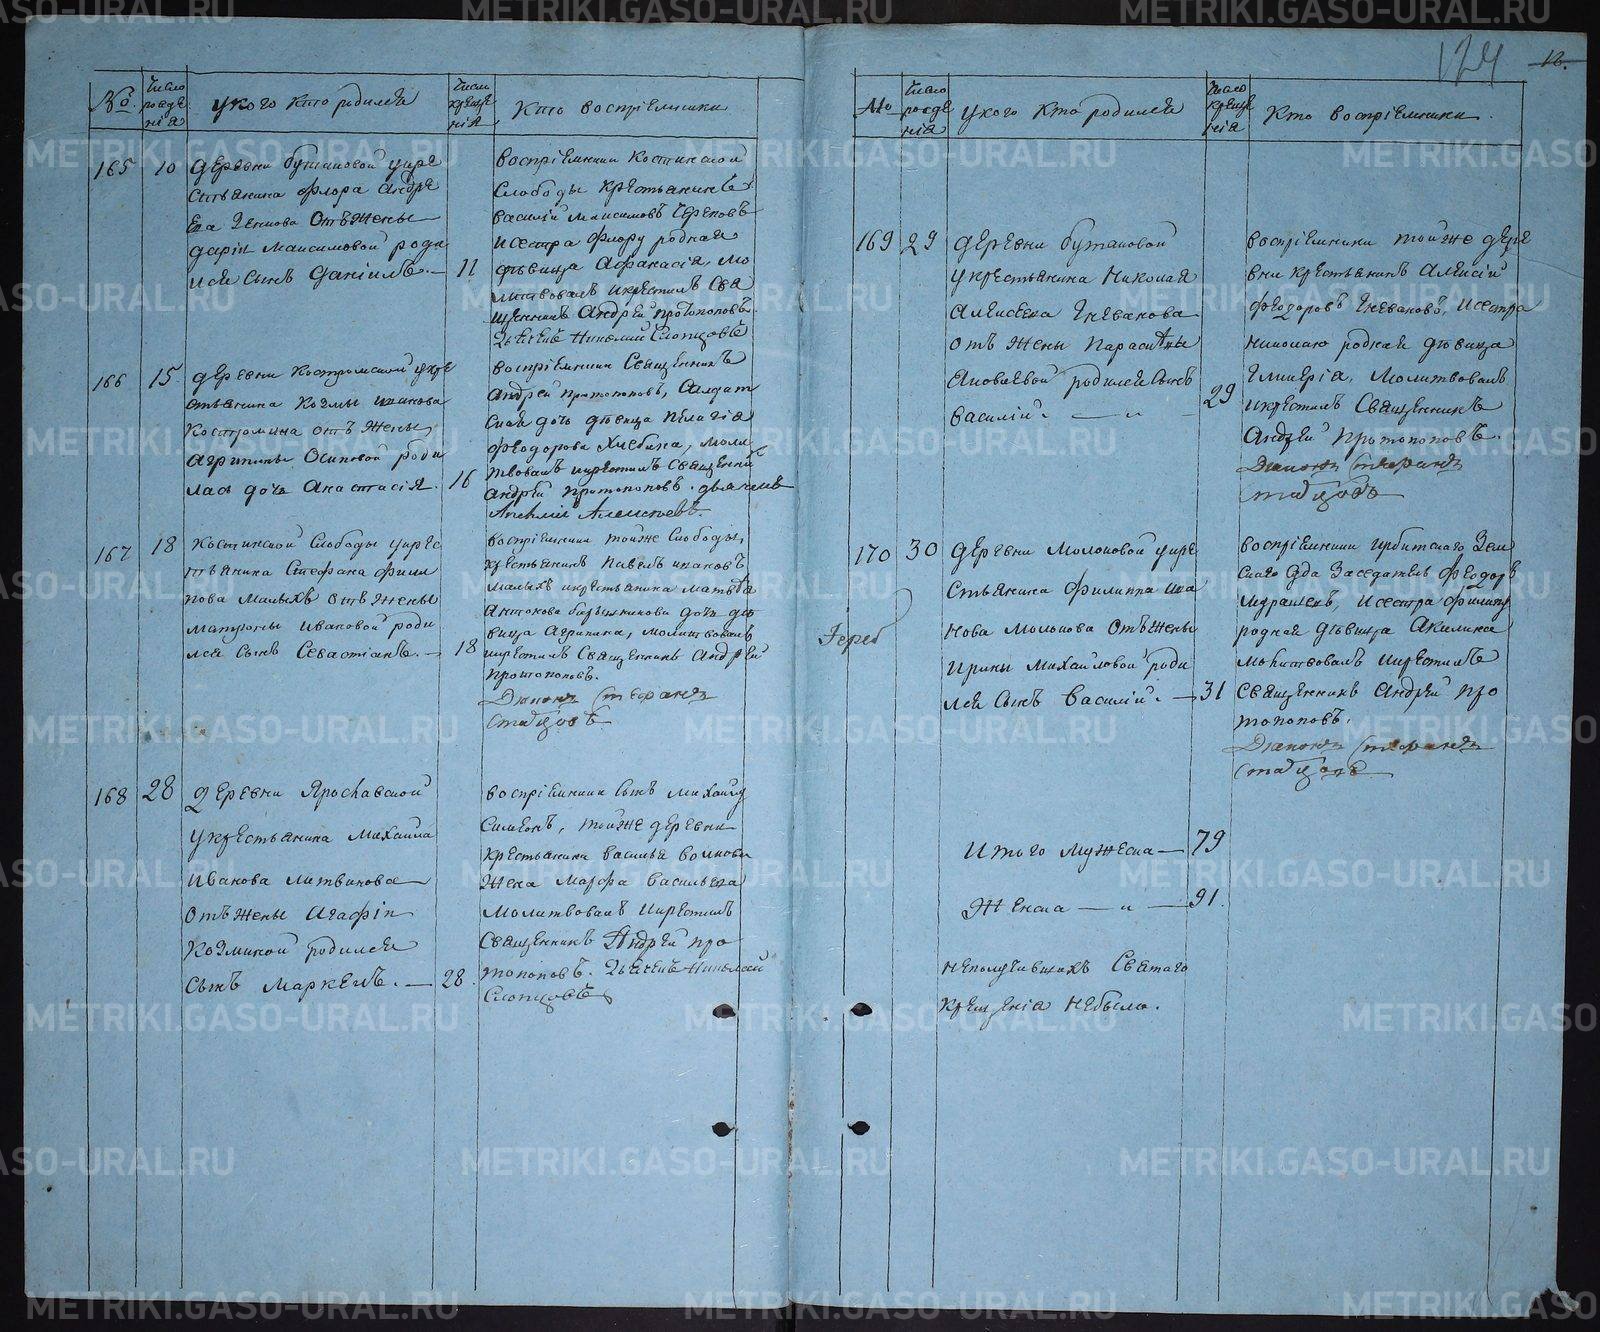 124 12.
№
Число рожде нія
у кого кто родился
Число креще нія
Кто воспріемники
165 10 деревни бутаковой у кре
стьянина Флора Андре
ева Отъ жены
даріи Максимовой роди
лся сынъ Даніилъ. — 11
воспріемники Костинской
Слободы крестьянинъ
василій Максимовъ Череповъ
и сестра Флору родная
дѣвица Афанасія, мо
литвовалъ и крестилъ Свя
щенникъ Андрей протопоповъ.
Дьячекъ Николай Слопцовъ
166 15 деревни Костромской у кре
стьянина Козмы иванова
Костромина отъ жены
Агрипины Осиповой роди
лась дочь Анастасія. 16
воспріемники Священникъ
Андрей протопоповъ, Салдат
ская дочь дѣвица Пелагія
Феодорова Хлебина, моли
твовалъ и крестилъ священни
Андрей протопоповъ. дьячекъ
Алексѣевъ.
167 18 Костинской Слободы у крес
тьянина Стефана Фили
пова Малыхъ отъ жены
матроны ивановой роди
лся сынъ Севастіанъ. — 18
воспріемники тойже Слободы,
крестьянинъ Павелъ ивановъ
Малыхъ и крестьянина
Антонова дочь дѣ
вица Агрипина, молитвовалъ
и крестилъ Священникъ Андрей
протопоповъ.
Дьяконъ Стефанъ
Стабцовъ
168 28 деревни Ярославской
у крестьянина Михаила
иванова литвинова
Отъ жены Агафіи
Козминой родился
сынъ Маркелъ. — 28.
воспріемники сынъ Михаилу
Симеонъ, тойже деревни
крестьянина василья волкова
жена Марфа васильева
молитвовалъ и крестилъ
Священникъ Андрей про
топоповъ. Дьячекъ Николай
Слопцовъ
№
Число рожде нія
у кого кто родился
Число креще нія
Кто воспріемники.
169 29 деревни бутаковой
у крестьянина Николая
Алексѣева Гневанова
отъ жены Параскевы
Яковлевой родился сынъ
василій. — „ — 29
воспріемники тойже дере
вни крестьянинъ Алексій
феодоровъ Гневановъ, и сестра
николаю родная дѣвица
Гликерія, молитвовалъ
и крестилъ Священникъ
Андрей протопоповъ.
Дьяконъ Стефанъ
Стабцовъ
170 30 деревни Молоковой у кре
стьянина Филиппа ива
нова Молокова отъ жены
ирины михайловой роди
лся сынъ василій. — 31
воспріемники ирбитскаго Зем
скаго Суда Заседатель феодоръ
и сестра филипу
родная дѣвица Акилина
молитвовалъ и крестилъ
Священникъ Андрей про
топоповъ.
Дьяконъ Стефанъ
Стабцовъ
Итого мужеска — 79
Женска — „ — 91.
неполучившихъ Святаго
крещенія небыло.
METRIKI.GASO-URAL.RU